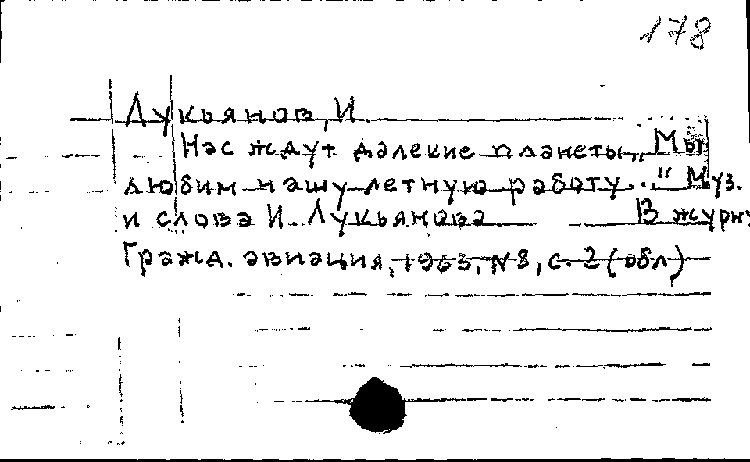 178
Лукьянов, И.
Нас ждут далекие планеты „Мы
любим нашу летную работу..." Муз.
и слова И. Лукьянова В журн:
Гражд. авиация, 1963, №8, с. 2 (обл)